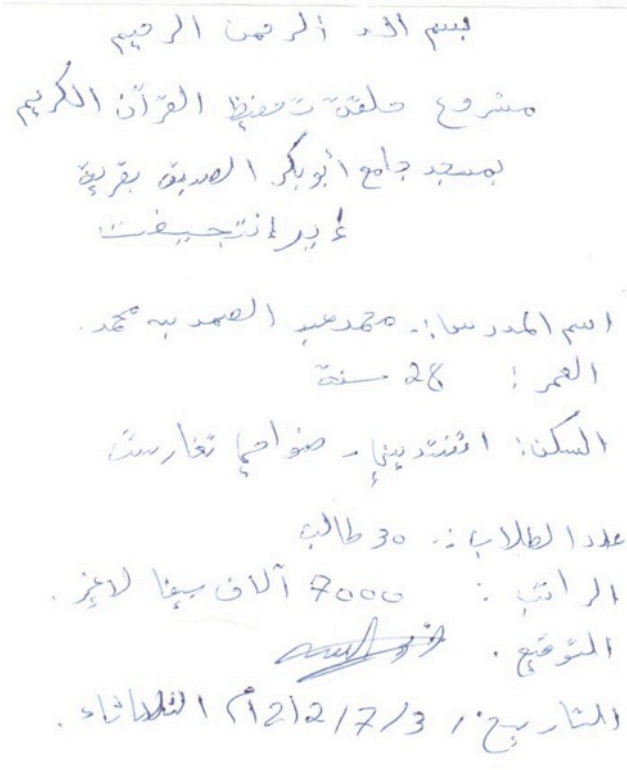 بسم الله الرحمن الرحيم
مشروع حلقة تحفيظ القرآن الكريم
بمسجد جامع أبوبكر الصديق بقرية
إنتجيفت
اسم المدرس: محمد عبد الصمد بن محمد.
العمر: 28 سنة
السكن: - ضواحي تغارست
عدد الطلاب: 30 طالب
الراتب: 7000 آلاف سيفا لاغير.
التوقيع.
التاريخ: 3/7/2012م الثلاثاء.